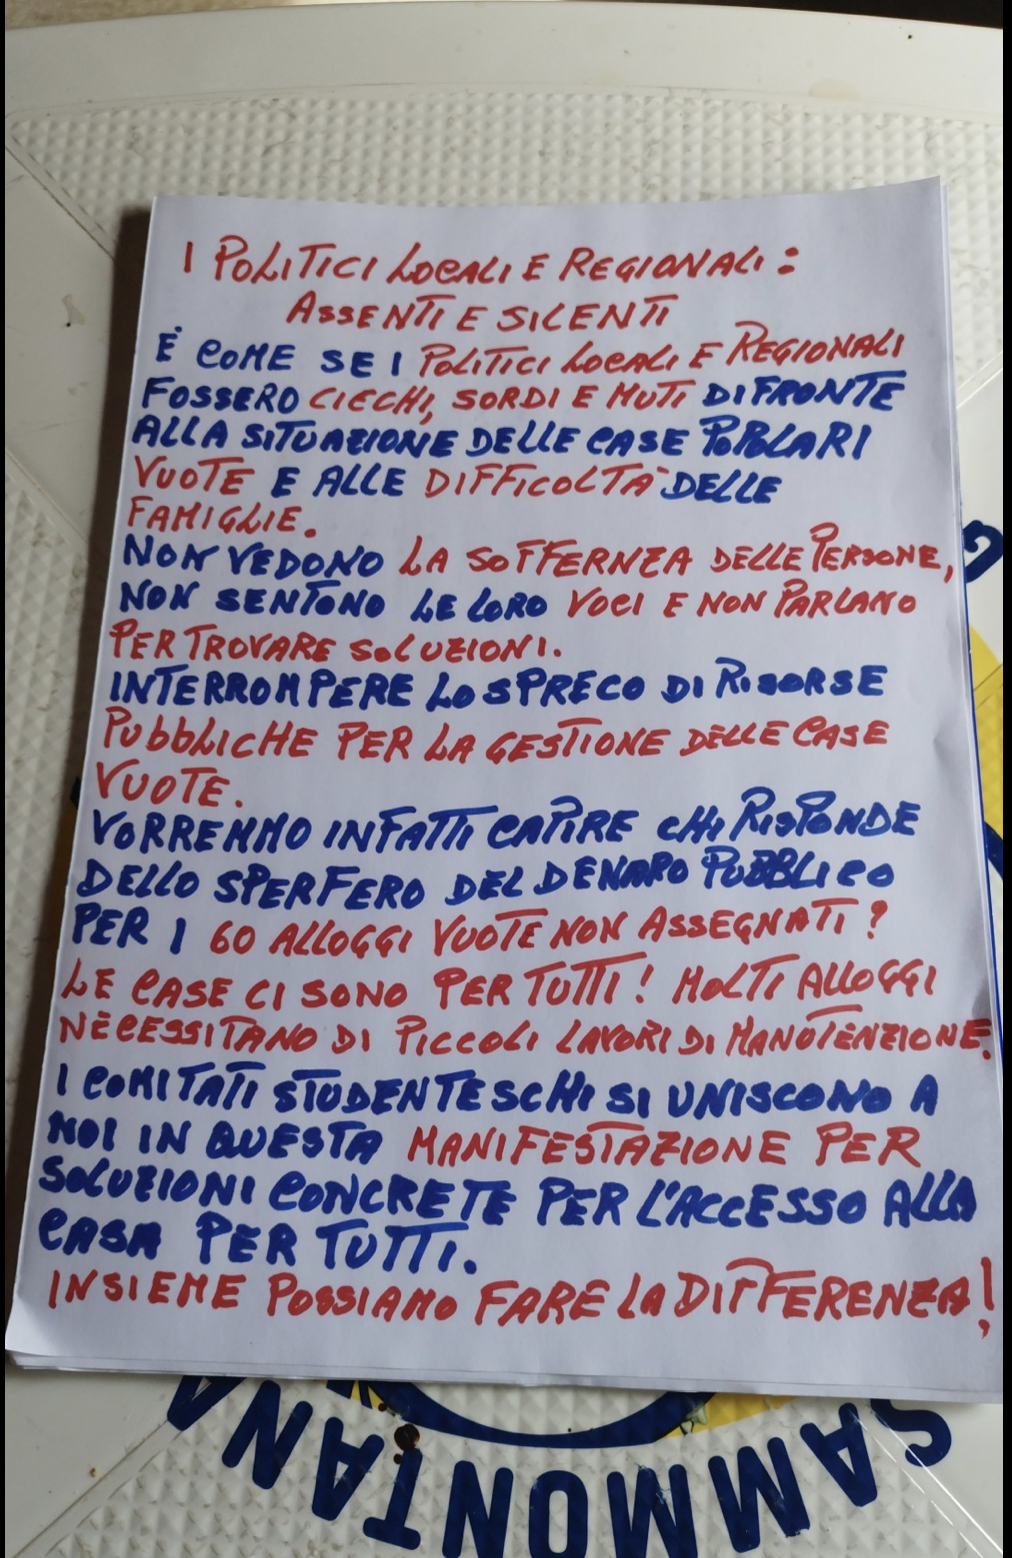 I POLITICI LOCALI E REGIONALI:
ASSENTI E SILENTI
È COME SE I POLITICI LOCALI E REGIONALI
FOSSERO CIECHI, SORDI E MUTI DIFRONTE
ALLA SITUAZIONE DELLE CASE POPOLARI
VUOTE E ALLE DIFFICOLTÀ DELLE
FAMIGLIE.
NON VEDONO LA SOFFERNZA DELLE PERSONE,
NON SENTONO LE LORO VOCI E NON PARLANO
PER TROVARE SOLUZIONI.
INTERROMPERE LO SPRECO DI RISORSE
PUBBLICHE PER LA GESTIONE DELLE CASE
VUOTE.
VORREMMO INFATTI CAPIRE CHI RISPONDE
DELLO SPERFERO DEL DENARO PUBBLICO
PER I 60 ALLOGGI VUOTE NON ASSEGNATI?
LE CASE CI SONO PER TUTTI! MOLTI ALLOGGI
NECESSITANO DI PICCOLI LAVORI DI MANUTENZIONE.
I COMITATI STUDENTESCHI SI UNISCONO A
NOI IN QUESTA MANIFESTAZIONE PER
SOLUZIONI CONCRETE PER L'ACCESSO ALLA
CASA PER TUTTI.
INSIEME POSSIAMO FARE LA DIFFERENZA!
SAMMONTANA